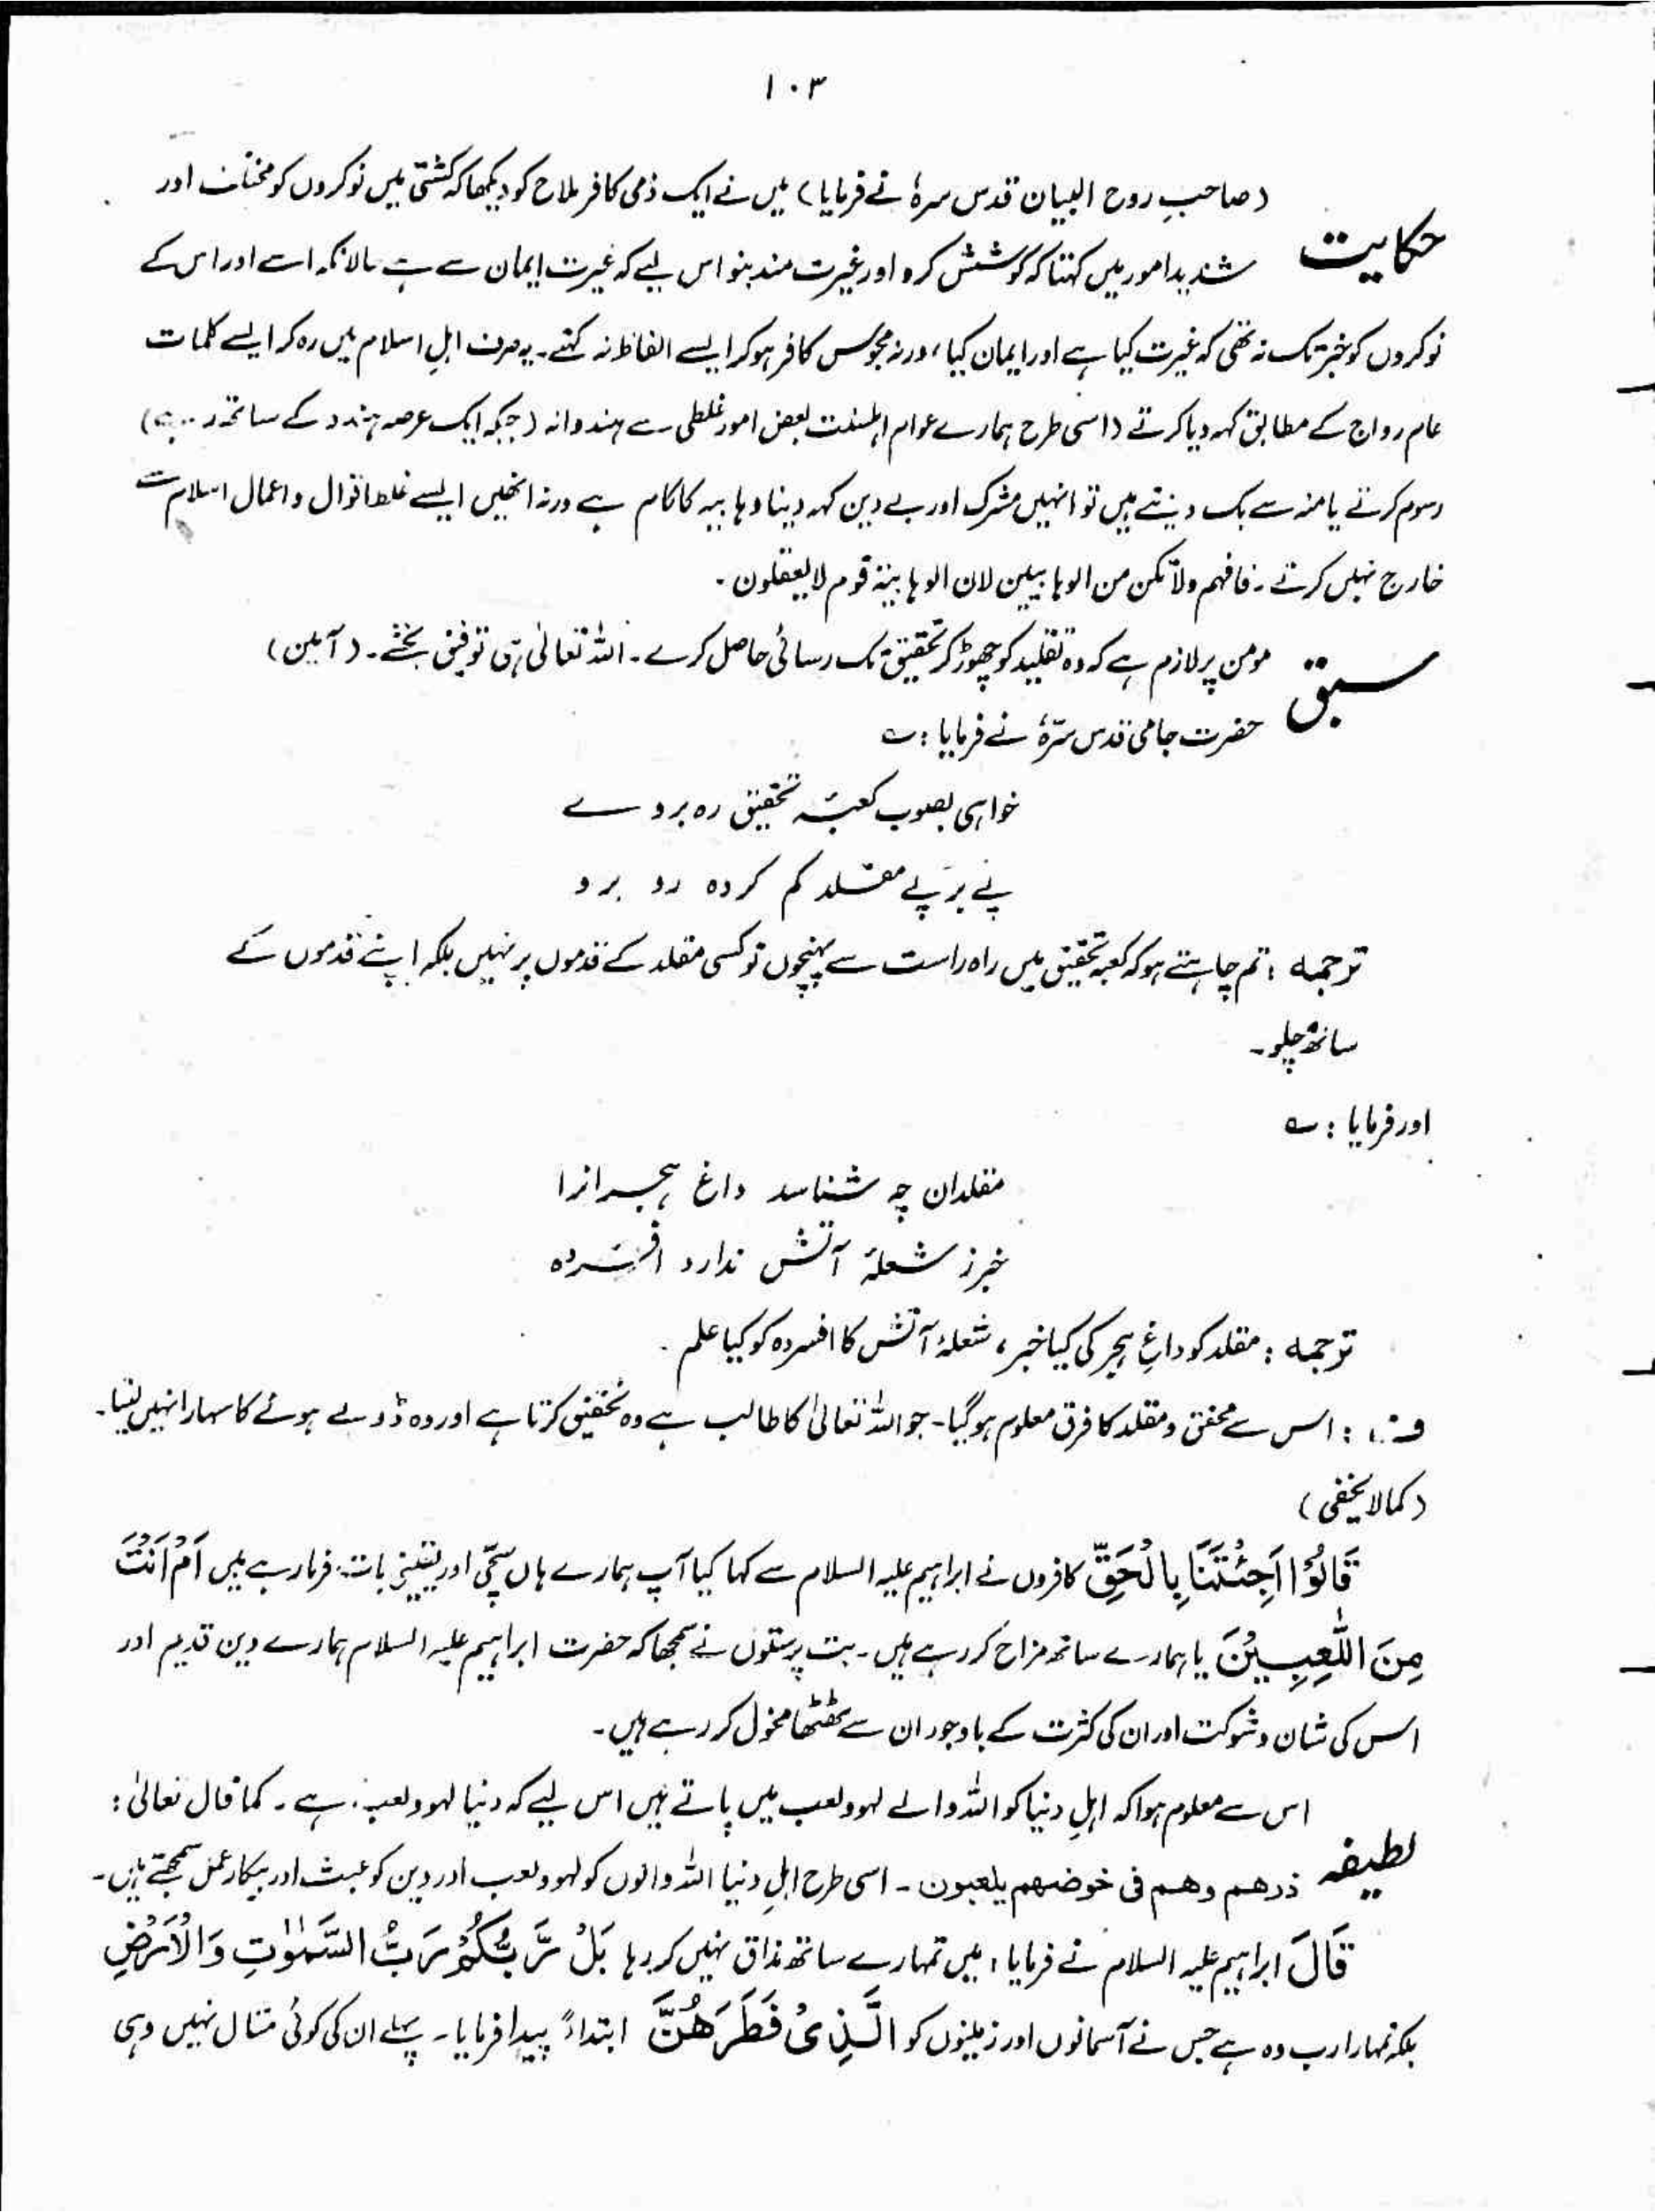 ۱۰۳
(صاحبِ روح البیان قدس سرہٗ نے فرمایا) میں نے ایک ذمی کافر ملاح کو دیکھا کہ کشتی میں نوکروں کو مختلف اور
حکایت شدید امور میں کہتا کہ کوشش کرو اور غیرت مند بنو اس لیے کہ غیرت ایمان سے ہے حالانکہ اسے اور اس کے
نوکروں کو خبر تک نہ تھی کہ غیرت کیا ہے اور ایمان کیا، ورنہ مجوسی کافر ہو کر ایسے الفاظ نہ کہتے۔ یہ صرف اہلِ اسلام میں رہ کر ایسے کلمات
عام رواج کے مطابق کہہ دیا کرتے (اسی طرح ہمارے عوام اہلسنت بعض امور غلطی سے ہندوانہ (جبکہ ایک عرصہ ہندو کے ساتھ ر ... ہے)
رسوم کرتے یا منہ سے بک دیتے ہیں تو انہیں مشرک اور بے دین کہہ دینا وہابیہ کا کام ہے ورنہ انھیں ایسے غلط اقوال و اعمال اسلام سے
خارج نہیں کرتے۔ فافہم ولا تکن من الوہابیین لان الوہابیۃ قوم لا یعقلون۔
سبق مومن پر لازم ہے کہ وہ تقلید کو چھوڑ کر تحقیق تک رسائی حاصل کرے۔ اللہ تعالیٰ ہی توفیق بخشے۔ (آمین)
حضرت جامی قدس سرّہٗ نے فرمایا : ؎
خواہی بصوب کعبۂ تحقیق رہ بری
پے بر پے مقلد گم کردہ رہ مرو
ترجمہ : تم چاہتے ہو کہ کعبہ تحقیق میں راہ راست سے پہنچوں تو کسی مقلد کے قدموں پر نہیں بلکہ اپنے قدموں کے
ساتھ چلو۔
اور فرمایا : ؎
مقلدان چہ شناسد داغ ہجرانرا
خبر ز شعلۂ آتش ندارد افسردہ
ترجمہ : مقلد کو داغِ ہجر کی کیا خبر، شعلۂ آتش کا افسردہ کو کیا علم۔
ف : اس سے محقق و مقلد کا فرق معلوم ہو گیا۔ جو اللہ تعالیٰ کا طالب ہے وہ تحقیق کرتا ہے اور وہ ڈوبے ہوئے کا سہارا نہیں لیتا۔
(کما لا یخفی)
قَالُوْا اَجِئْتَنَا بِالْحَقِّ کافروں نے ابراہیم علیہ السلام سے کہا کیا آپ ہمارے ہاں سچّی اور یقینی بات فرما رہے ہیں اَمْ اَنْتَ
مِنَ اللّٰعِبِیْنَ یا ہمارے ساتھ مزاح کر رہے ہیں۔ بت پرستوں نے سمجھا کہ حضرت ابراہیم علیہ السلام ہمارے دین قدیم اور
اس کی شان و شوکت اور ان کی کثرت کے باوجود ان سے ٹھٹھا مخول کر رہے ہیں۔
اس سے معلوم ہوا کہ اہلِ دنیا کو اللہ والے لہو و لعب میں پاتے ہیں اس لیے کہ دنیا لہو و لعب ہے۔ کما قال تعالیٰ :
لطیفہ ذرھم وھم فی خوضھم یلعبون۔ اسی طرح اہلِ دنیا اللہ والوں کو لہو و لعب اور دین کو عبث اور بیکار عمل سمجھتے ہیں۔
قَالَ ابراہیم علیہ السلام نے فرمایا : میں تمہارے ساتھ مذاق نہیں کر رہا بَلْ رَّبُّکُمْ رَبُّ السَّمٰوٰتِ وَالْاَرْضِ
بلکہ تمہارا رب وہ ہے جس نے آسمانوں اور زمینوں کو الَّذِیْ فَطَرَھُنَّ ابتداءً پیدا فرمایا۔ پہلے ان کی کوئی مثال نہیں وہی